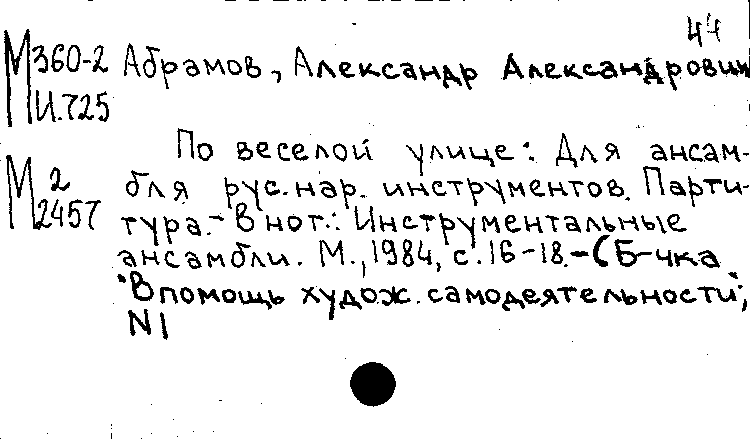 44
М360-2 Абрамов, Александр Александрович
И.725
По веселой улице: Для ансам-
М 2 бля рус. нар. инструментов. Парти-
2457 тура.- В нот.: Инструментальные
ансамбли. М., 1984, с. 16-18.-(Б-чка
"В помощь худож. самодеятельности",
N1